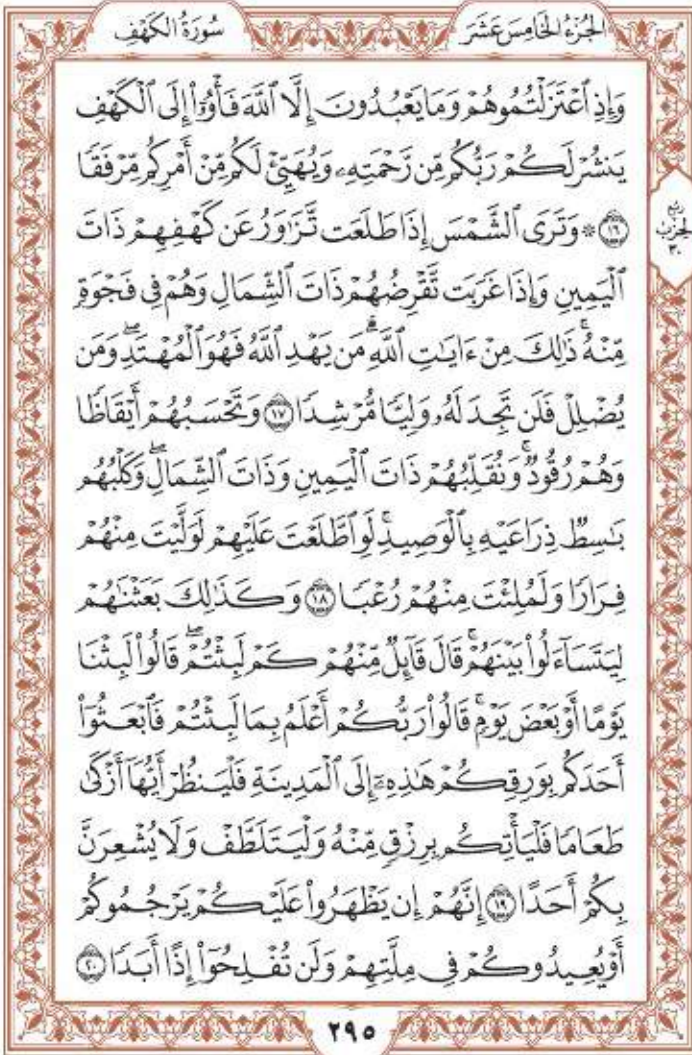 الجُزْءُ الخَامِسَ عَشَرَ
سُورَةُ الكَهْفِ
وَإِذِ ٱعْتَزَلْتُمُوهُمْ وَمَا يَعْبُدُونَ إِلَّا ٱللَّهَ فَأْوُۥٓاْ إِلَى ٱلْكَهْفِ
يَنشُرْ لَكُمْ رَبُّكُم مِّن رَّحْمَتِهِۦ وَيُهَيِّئْ لَكُم مِّنْ أَمْرِكُم مِّرْفَقًا
١٦ ۞ وَتَرَى ٱلشَّمْسَ إِذَا طَلَعَت تَّزَٰوَرُ عَن كَهْفِهِمْ ذَاتَ
ربع الحزب ٣٠
ٱلْيَمِينِ وَإِذَا غَرَبَت تَّقْرِضُهُمْ ذَاتَ ٱلشِّمَالِ وَهُمْ فِى فَجْوَةٍ
مِّنْهُ ۚ ذَٰلِكَ مِنْ ءَايَٰتِ ٱللَّهِ ۗ مَن يَهْدِ ٱللَّهُ فَهُوَ ٱلْمُهْتَدِ ۖ وَمَن
يُضْلِلْ فَلَن تَجِدَ لَهُۥ وَلِيًّا مُّرْشِدًا ١٧ وَتَحْسَبُهُمْ أَيْقَاظًا
وَهُمْ رُقُودٌ ۚ وَنُقَلِّبُهُمْ ذَاتَ ٱلْيَمِينِ وَذَاتَ ٱلشِّمَالِ ۖ وَكَلْبُهُم
بَٰسِطٌ ذِرَاعَيْهِ بِٱلْوَصِيدِ ۚ لَوِ ٱطَّلَعْتَ عَلَيْهِمْ لَوَلَّيْتَ مِنْهُمْ
فِرَارًا وَلَمُلِئْتَ مِنْهُمْ رُعْبًا ١٨ وَكَذَٰلِكَ بَعَثْنَٰهُمْ
لِيَتَسَآءَلُواْ بَيْنَهُمْ ۚ قَالَ قَآئِلٌ مِّنْهُمْ كَمْ لَبِثْتُمْ ۖ قَالُواْ لَبِثْنَا
يَوْمًا أَوْ بَعْضَ يَوْمٍ ۚ قَالُواْ رَبُّكُمْ أَعْلَمُ بِمَا لَبِثْتُمْ فَٱبْعَثُوٓاْ
أَحَدَكُم بِوَرِقِكُمْ هَٰذِهِۦٓ إِلَى ٱلْمَدِينَةِ فَلْيَنظُرْ أَيُّهَآ أَزْكَىٰ
طَعَامًا فَلْيَأْتِكُم بِرِزْقٍ مِّنْهُ وَلْيَتَلَطَّفْ وَلَا يُشْعِرَنَّ
بِكُمْ أَحَدًا ١٩ إِنَّهُمْ إِن يَظْهَرُواْ عَلَيْكُمْ يَرْجُمُوكُمْ
أَوْ يُعِيدُوكُمْ فِى مِلَّتِهِمْ وَلَن تُفْلِحُوٓاْ إِذًا أَبَدًا ٢٠
٢٩٥